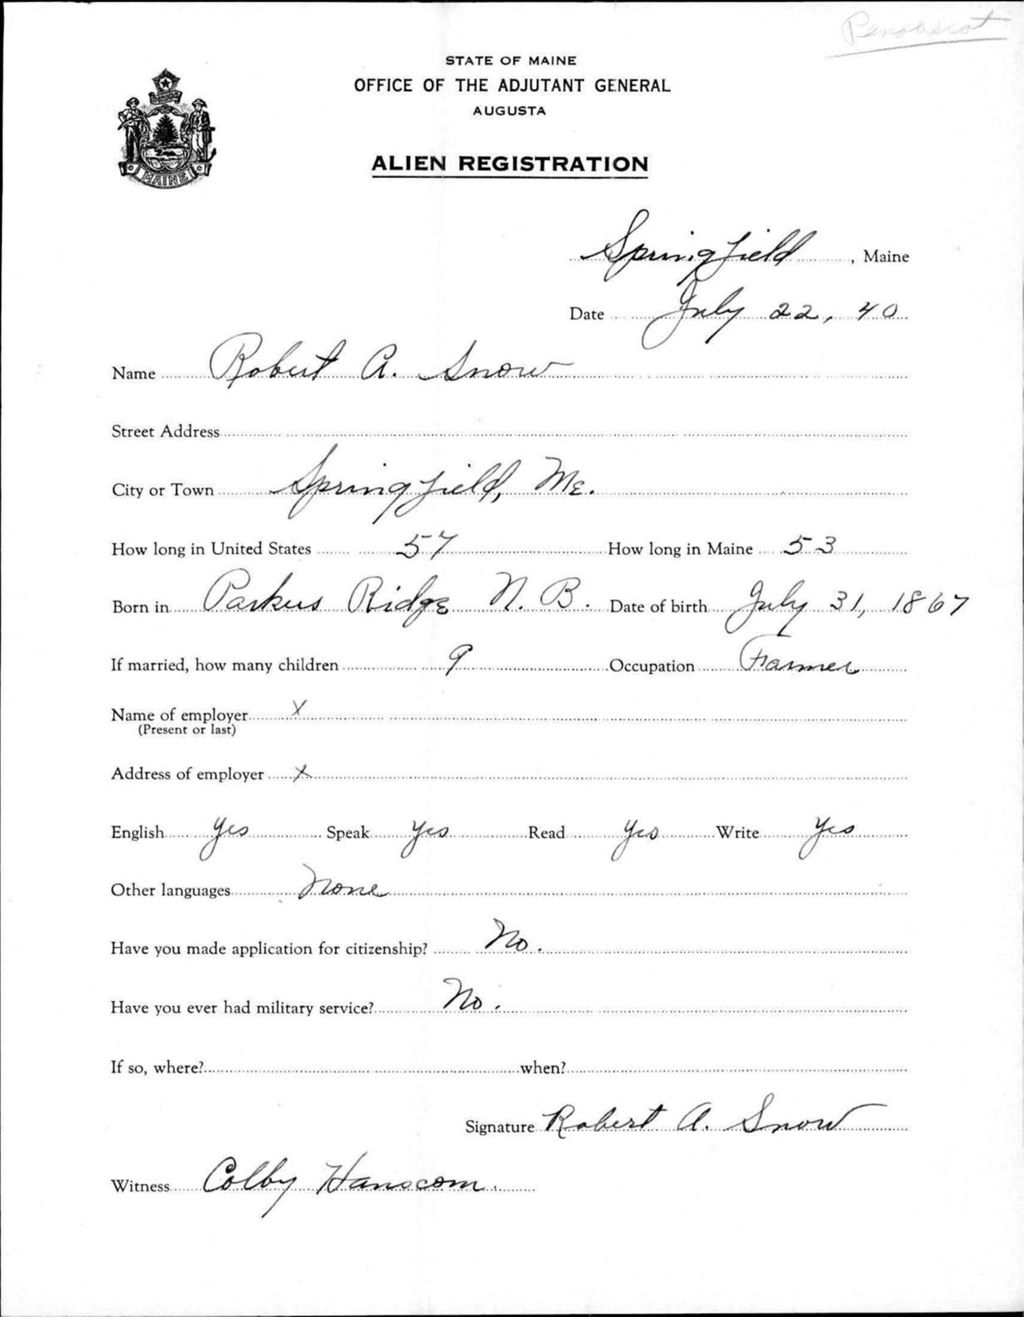 Penobscot
STATE OF MAINE
OFFICE OF THE ADJUTANT GENERAL
AUGUSTA
ALIEN REGISTRATION
MAINE
Springfield, Maine
Date July 22, 40
Name Robert A. Snow
Street Address
City or Town Springfield, Me.
How long in United States 57 How long in Maine 53
Born in Parkus Ridge N. B. Date of birth July 31, 1867
If married, how many children 9 Occupation Farmer
Name of employer X
(Present or last)
Address of employer X
English Yes Speak Yes Read Yes Write Yes
Other languages None
Have you made application for citizenship? No.
Have you ever had military service? No.
If so, where? when?
Signature Robert A. Snow
Witness Colby Hanscom.